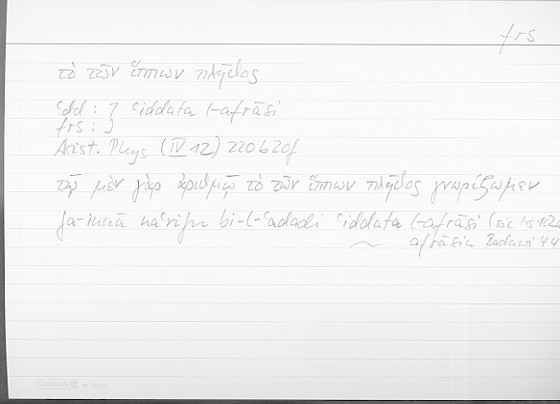 frs
τὸ τῶν ἵππων πλῆθος
ʿdd : } ʿiddata l-afrāsi
frs : }
Arist. Phys (IV 12) 220b20f
τῷ μὲν γὰρ ἀριθμῷ τὸ τῶν ἵππων πλῆθος γνωρίζομεν
fa-innā naʿrifu bi-l-ʿadadi ʿiddata l-afrāsi (sic
afrāsin Badawi 44